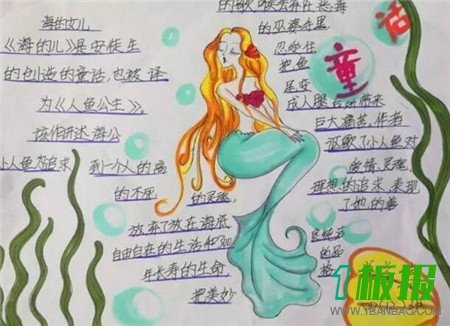 海的女儿
《海的儿》是安徒生
的创造的童话,也被译
为《人鱼公主》,
该作讲述海公
小人鱼为追求 到一个人的高
的不死 的灵魂,
放弃了放在海底
自由自在的生活和300
年长寿的生命,
把美妙
的巫婆手里,
忍受住
把鱼
尾变
成人腿后所带来
巨大痛苦,作者
讴歌了小人鱼对
爱情、灵魂、
理想的追求,表现
了她的善
良纯真
的品
格
童话
板报
WWW.YBANBAO.COM